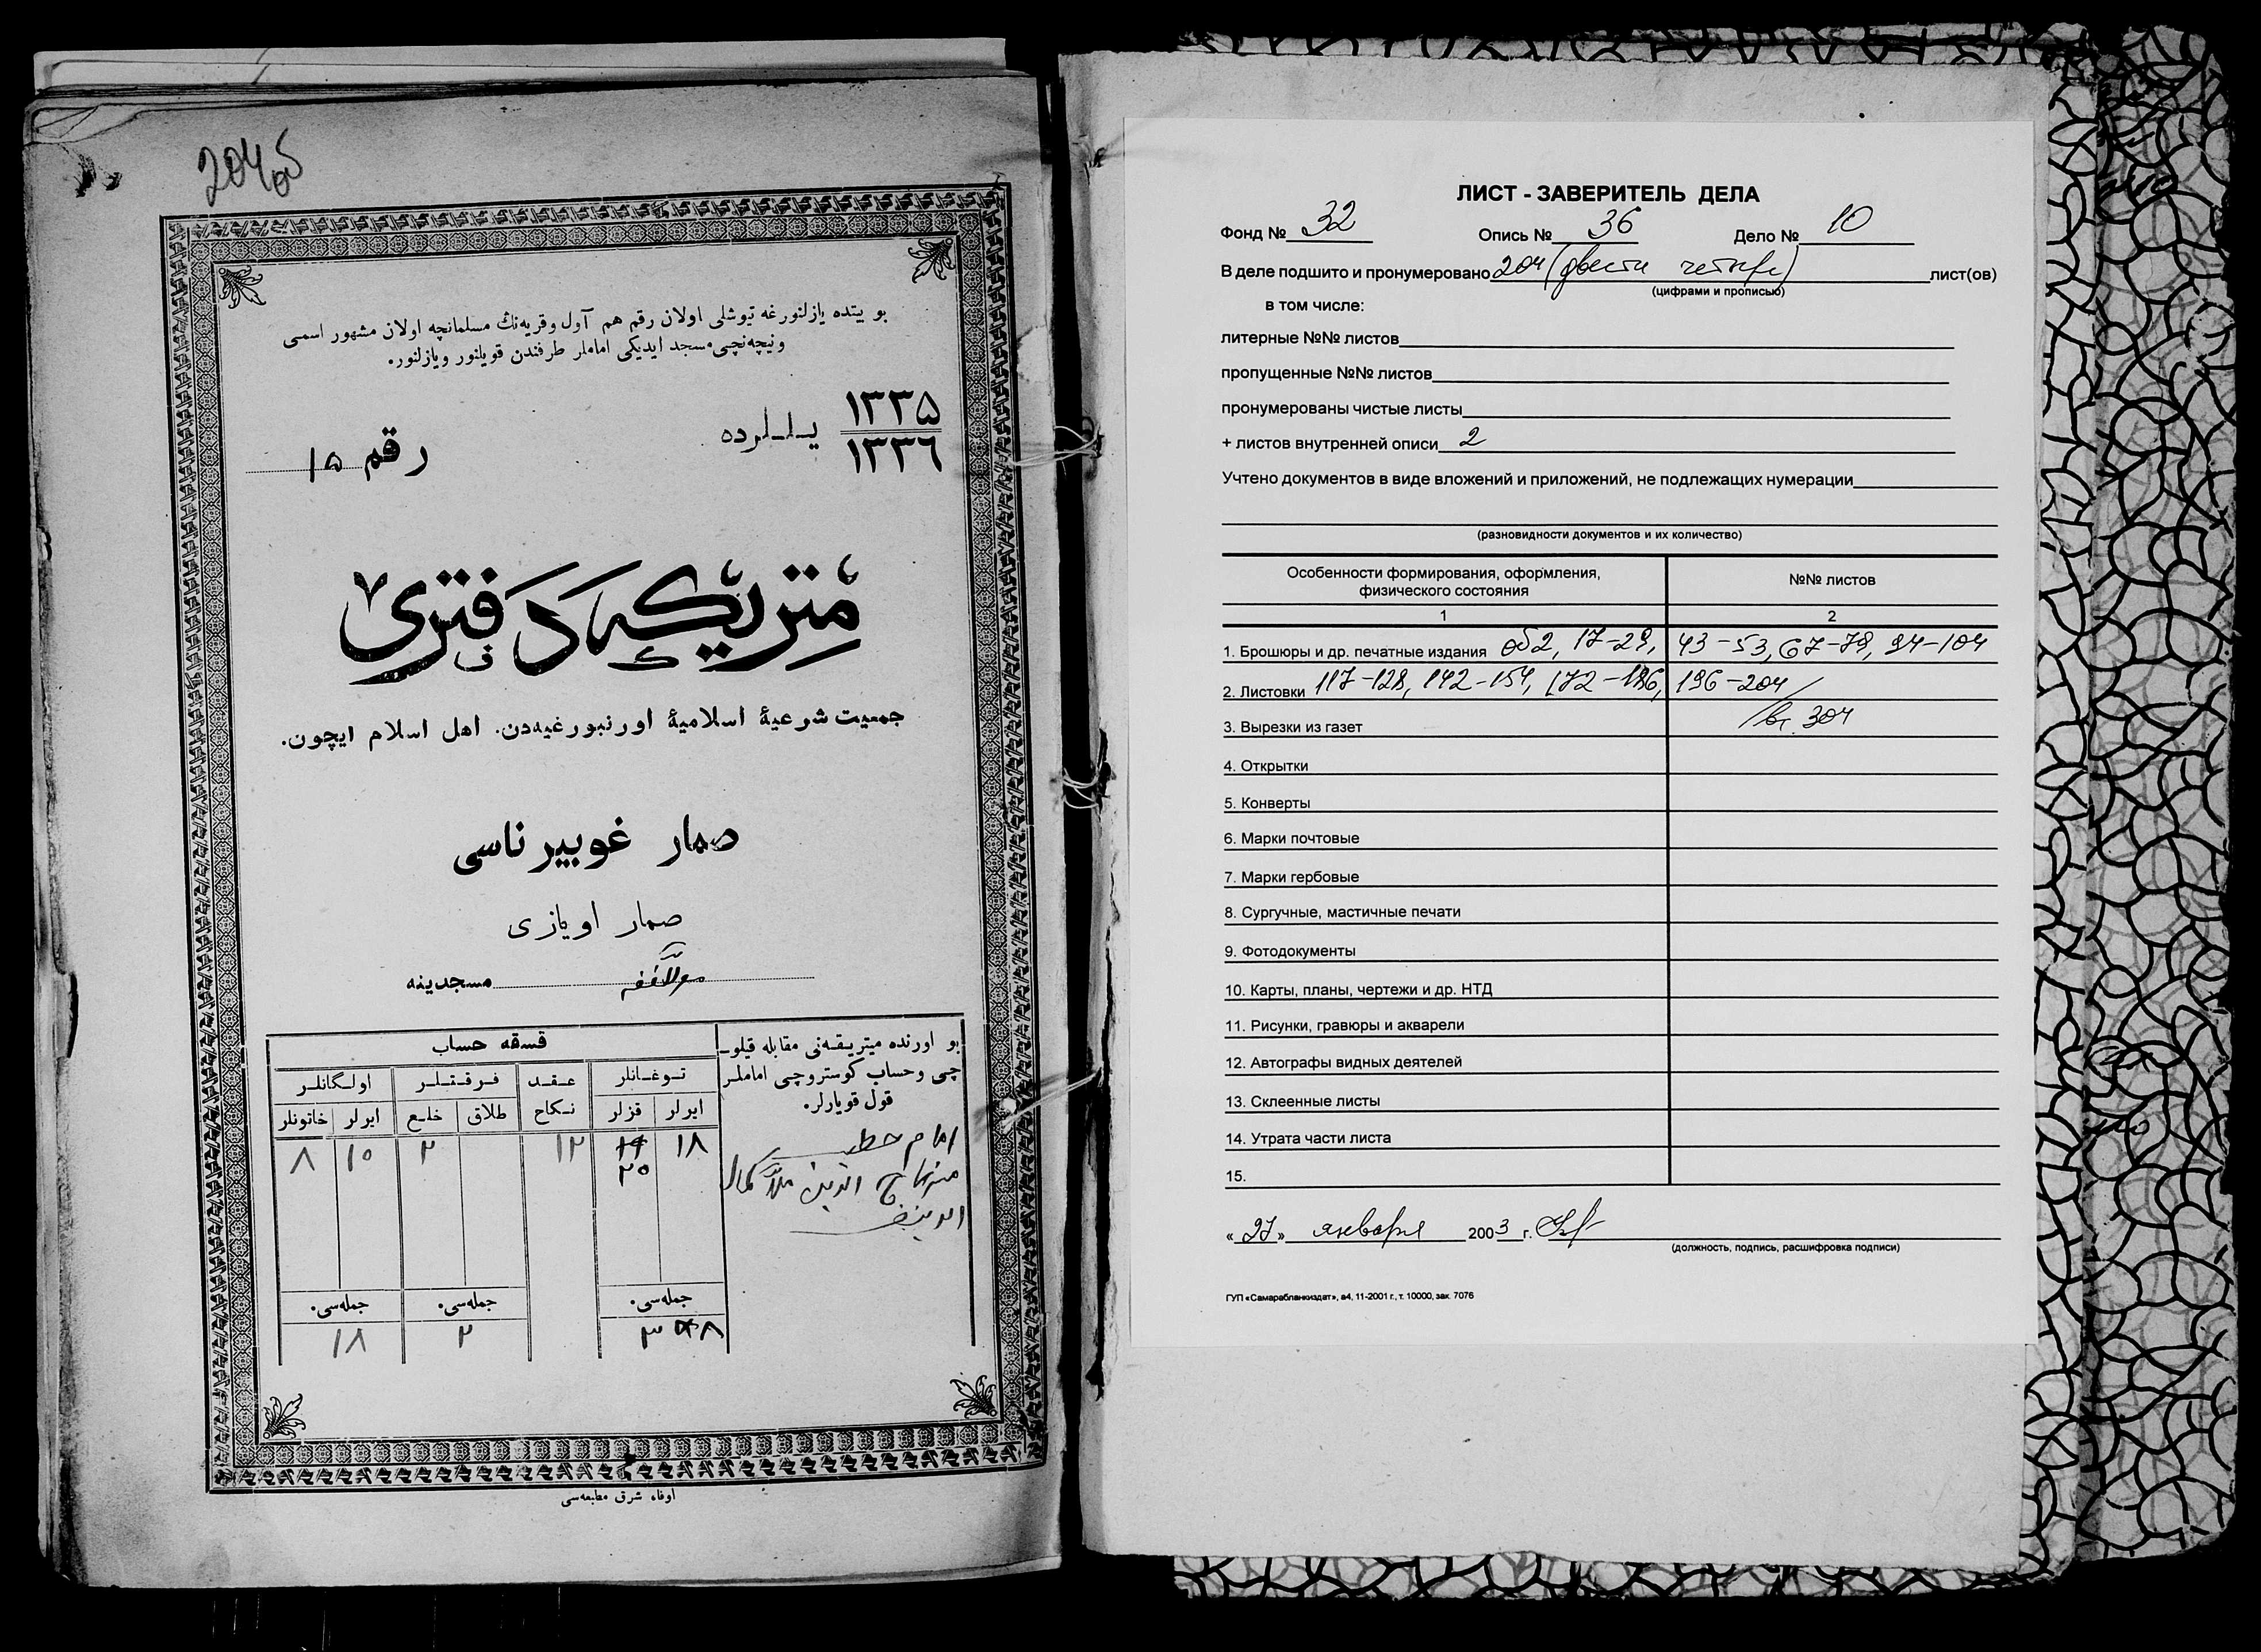 204об
بو بیتده یازلنورغه تیوشلی اولان رقم هم آول وقریه‌نڭ مسلمانچه اولان مشهور اسمی
ونیچه‌نچی مسجد ایدیکی اماملر طرفندن قویلنور ویازلنور.
١٣٣۵
١٣٣٦
یـلـلرده
رقم ١۵
متریکه دفتری
جمعیت شرعیهٔ اسلامیهٔ اورنبورغیه‌دن. اهل اسلام ایچون.
صمار غوبیرناسی
صمار اویازی
مسجدینه
بو اورنده میتریـقـه‌نی مقابله قیلو-
چی وحساب کوستروچی اماملر
قول قویارلر.
امام خطیب
قسقه حساب
تـوغـانلر عـقـد فـرقـتـلـر اولـگانلـر
ایرلر قزلر نـکاح طلاق خلـع ایرلر خاتونلر
١٨ ١٢ ٢ ١٠ ٨
٢٠
جمله‌سی. جمله‌سی. جمله‌سی.
٣٨ ٢ ١٨
اوفاء شرق مطبعه‌سی
ЛИСТ - ЗАВЕРИТЕЛЬ ДЕЛА
Фонд № 32 Опись № 36 Дело № 10
В деле подшито и пронумеровано 204 (двести четыре) лист(ов)
(цифрами и прописью)
в том числе:
литерные №№ листов
пропущенные №№ листов
пронумерованы чистые листы
+ листов внутренней описи 2
Учтено документов в виде вложений и приложений, не подлежащих нумерации
(разновидности документов и их количество)
Особенности формирования, оформления, физического состояния №№ листов
1 2
1. Брошюры и др. печатные издания об2, 17-29, 43-53, 67-79, 94-104
2. Листовки 117-128, 142-154, 172-186, 196-204
3. Вырезки из газет 304
4. Открытки
5. Конверты
6. Марки почтовые
7. Марки гербовые
8. Сургучные, мастичные печати
9. Фотодокументы
10. Карты, планы, чертежи и др. НТД
11. Рисунки, гравюры и акварели
12. Автографы видных деятелей
13. Склеенные листы
14. Утрата части листа
15.
« 27 » января 2003 г.
(должность, подпись, расшифровка подписи)
ГУП «Самарабланкиздат», а4, 11-2001 г., т. 10000, зак. 7076